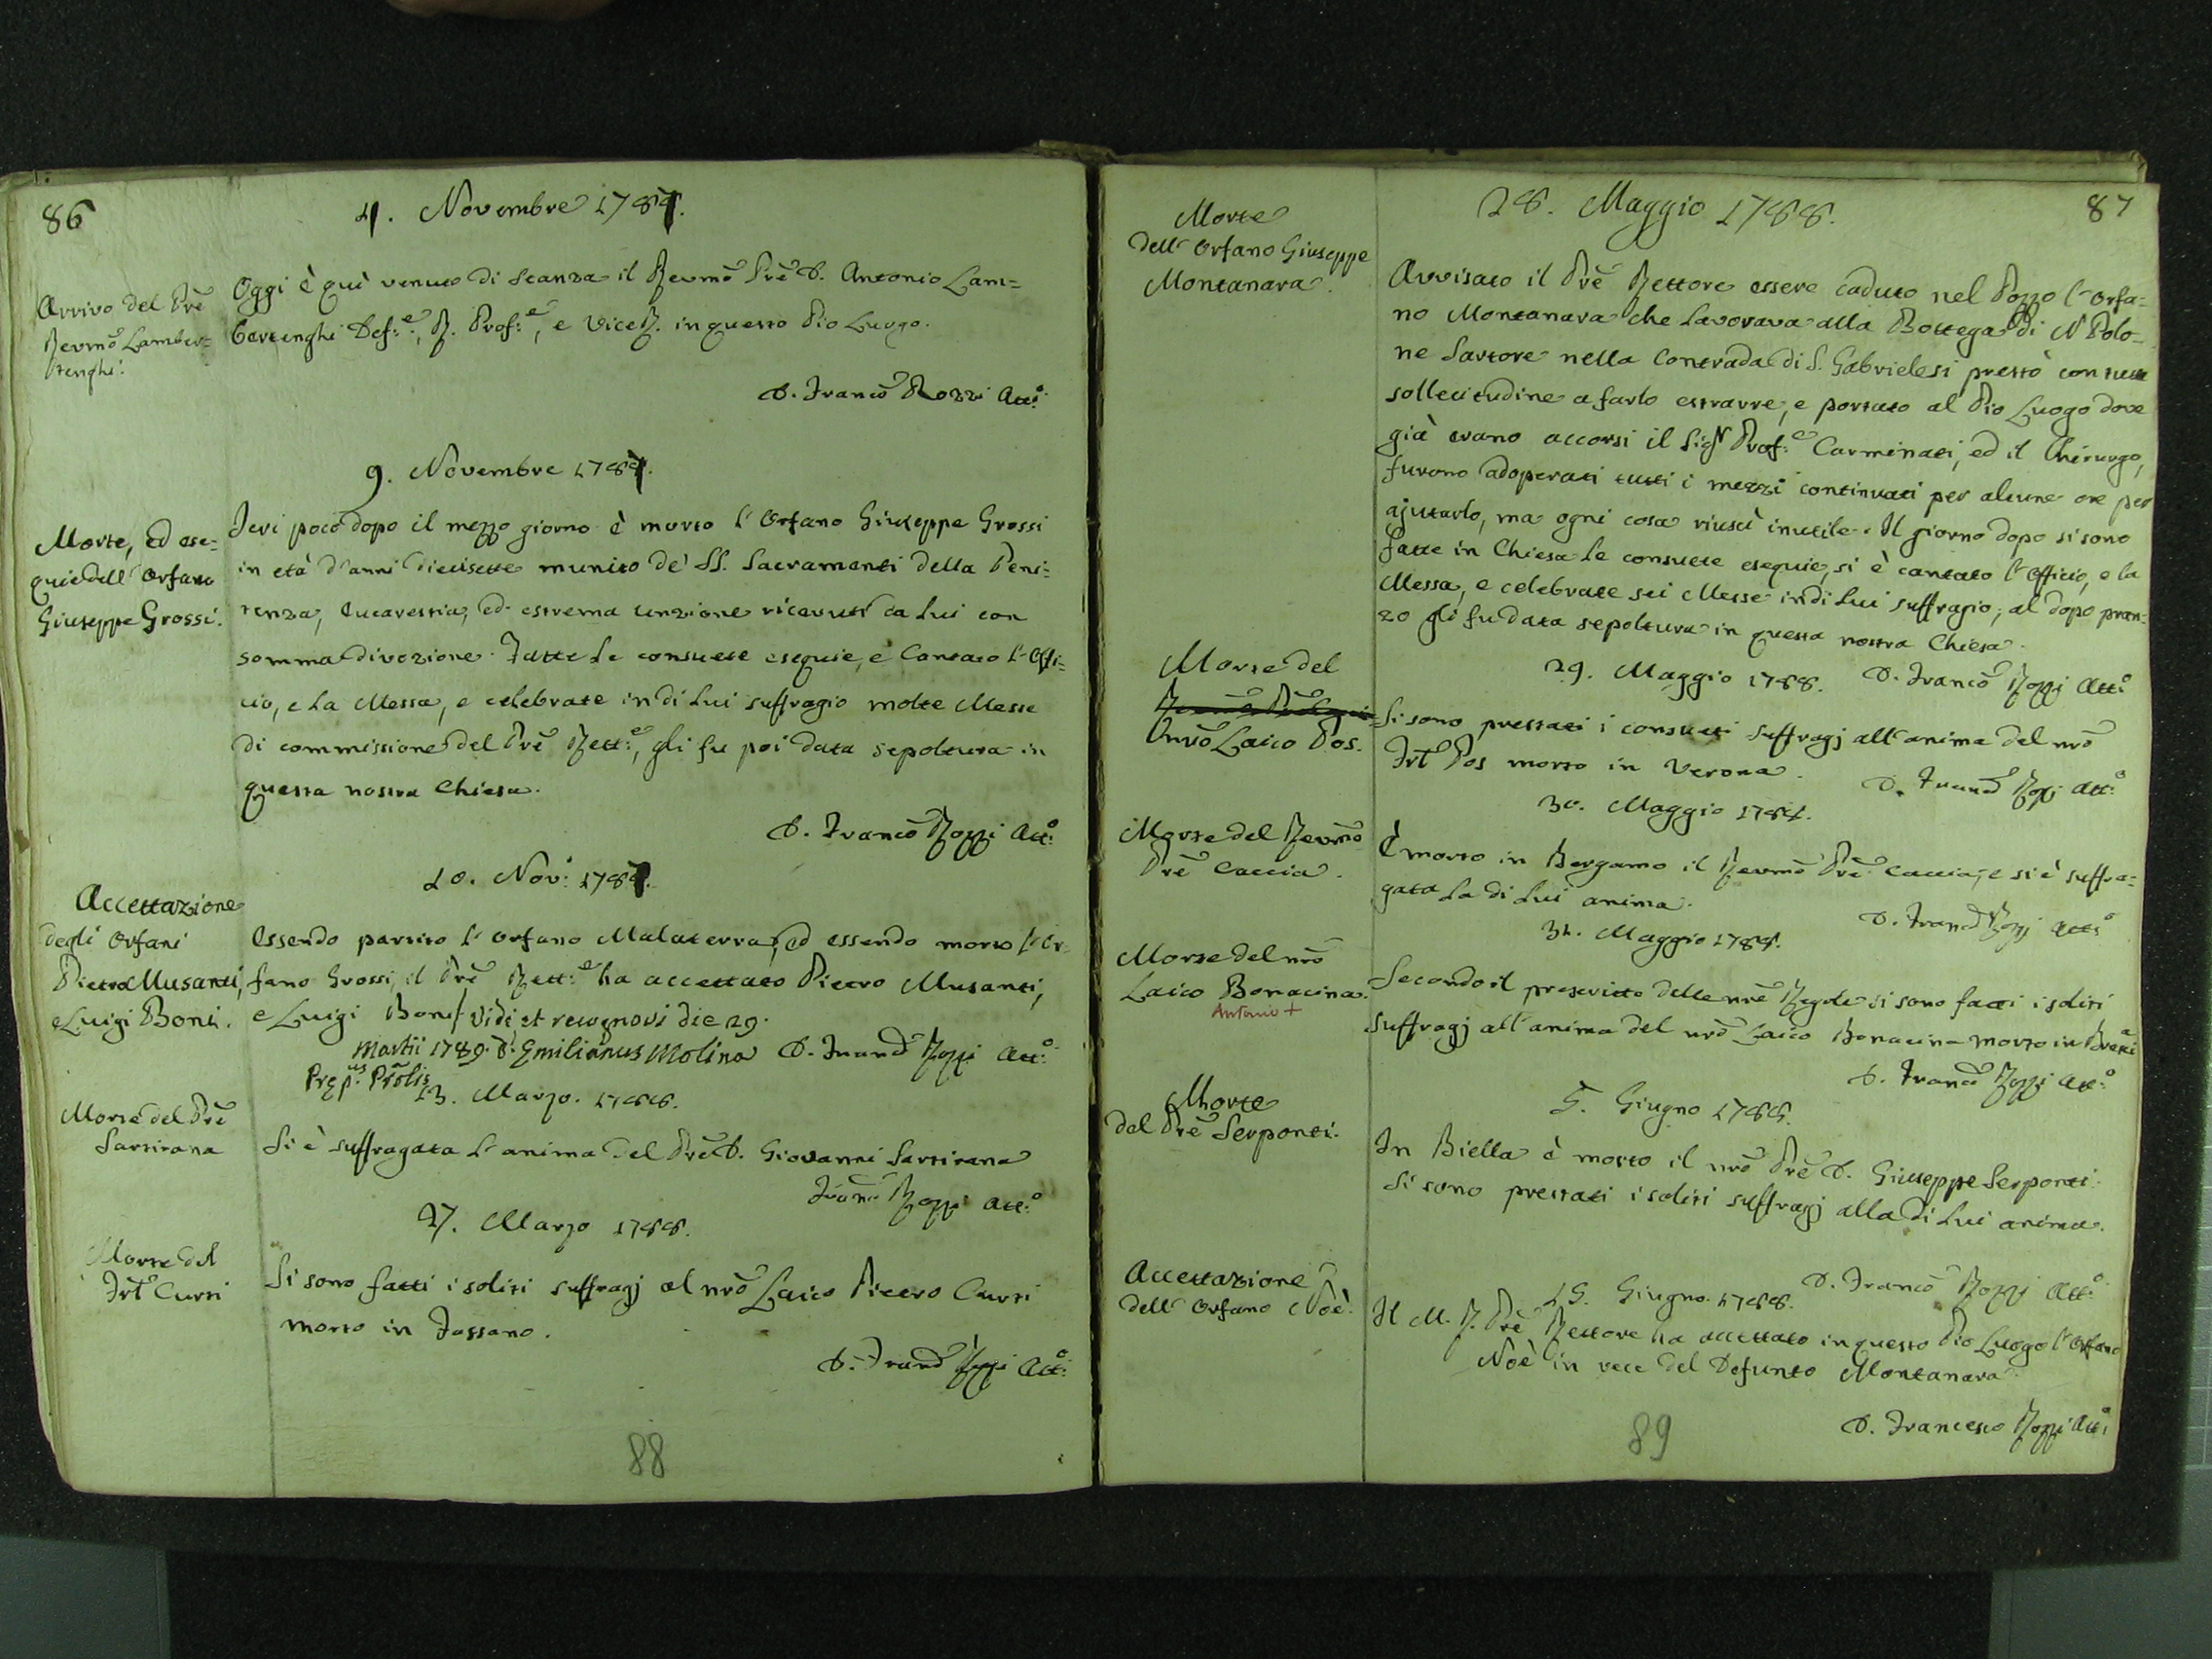 86
4. Novembre 1787.
Arrivo del Prẽ
Revmõ Lamber=
tenghi.
Oggi è quì venuto di stanza il Revmõ Prẽ D. Antonio Lam=
bertenghi Def:e, R. Prof:e, e Vice R. in questo Pio Luogo.
D. Francõ Rozzi Att:o
9. Novembre 1787.
Morte, ed ese=
quie dell'Orfano
Giuseppe Grossi.
Jeri poco dopo il mezzo giorno è morto l'Orfano Giuseppe Grossi
in età d'anni diecisette munito de' SS. Sacramenti della Peni=
tenza, Eucarestia, ed estrema unzione ricevuti da Lui con
somma divozione. Fatte le consuete esequie, e Cantato l'Offi=
cio, e la Messa, e celebrate in di Lui suffragio molte Messe
di commissione del Prẽ Rett:e, gli fu poi data sepoltura in
questa nostra Chiesa.
D. Francõ Rozzi Att:o
10. Nov: 1787.
Accettazione
degli Orfani
Pietro Musanti,
e Luigi Boni.
Essendo partito l'orfano Malaterra, ed essendo morto l'Or=
fano Grossi, il Prẽ Rett:e ha accettato Pietro Musanti,
e Luigi Boni. Vidi, et recognovi die 29.
Martii 1789. D. Emilianus Molina D. Francõ Rozzi Att:o
Prep:us Prõlis
13. Marzo. 1788.
Morte del Prẽ
Sartirana
Si è suffragata l'anima del Prẽ D. Giovanni Sartirana
Francõ Rozzi Att:o
27. Marzo 1788.
Morte del
Frt̃ Curti
Si sono fatti i soliti suffragj al nrõ Laico Pietro Curti
morto in Fossano.
D. Francõ Rozzi Att:o
88
87
28. Maggio 1788.
Morte
dell'Orfano Giuseppe
Montanara.
Avvisato il Prẽ Rettore essere caduto nel Pozzo l'Orfa=
no Montanara che lavorava alla Bottega di N Polo=
ne Sartore nella Contrada di S. Gabriele si prestò con tutta
sollecitudine a farlo estrarre, e portato al Pio Luogo dove
già erano accorsi il Sigr Prof:e Carminati, ed il Chirurgo,
furono adoperati tutti i mezzi continuati per alcune ore per
ajutarlo, ma ogni cosa riuscì inutile. Il giorno dopo si sono
fatte in Chiesa le consuete esequie, si è cantato l'Officio, e la
Messa, e celebrate sei Messe in di Lui suffragio; al dopo pran=
zo gli fu data sepoltura in questa nostra Chiesa.
D. Francõ Rozzi Att:o
29. Maggio 1788.
Morte del
nrõ Laico Pos.
Si sono prestati i consueti suffragj all'anima del nrõ
Frt̃ Pos morto in Verona.
D. Francõ Rozzi Att:o
30. Maggio 1788.
Morte del Revmõ
Prẽ Caccia.
È morto in Bergamo il Revmõ Prẽ Caccia, e si è suffra=
gata la di Lui anima.
D. Francõ Rozzi Att:o
31. Maggio 1788.
Morte del nrõ
Laico Bonacina.
Antonio +
Secondo il prescritto delle nrẽ Regole si sono fatti i soliti
suffragj all'anima del nrõ Laico Bonacina morto in
D. Francõ Rozzi Att:o
5. Giugno 1788.
Morte
del Prẽ Serponti.
In Biella è morto il nrõ Prẽ D. Giuseppe Serponti.
Si sono prestati i soliti suffragj alla di Lui anima.
D. Francõ Rozzi Att:o
15. Giugno. 1788.
Accettazione
dell'Orfano Noè.
Il M. R. Prẽ Rettore ha accettato in questo Pio Luogo l'Orfano
Noè in vece del Defunto Montanara.
D. Francesco Rozzi Att:o
89